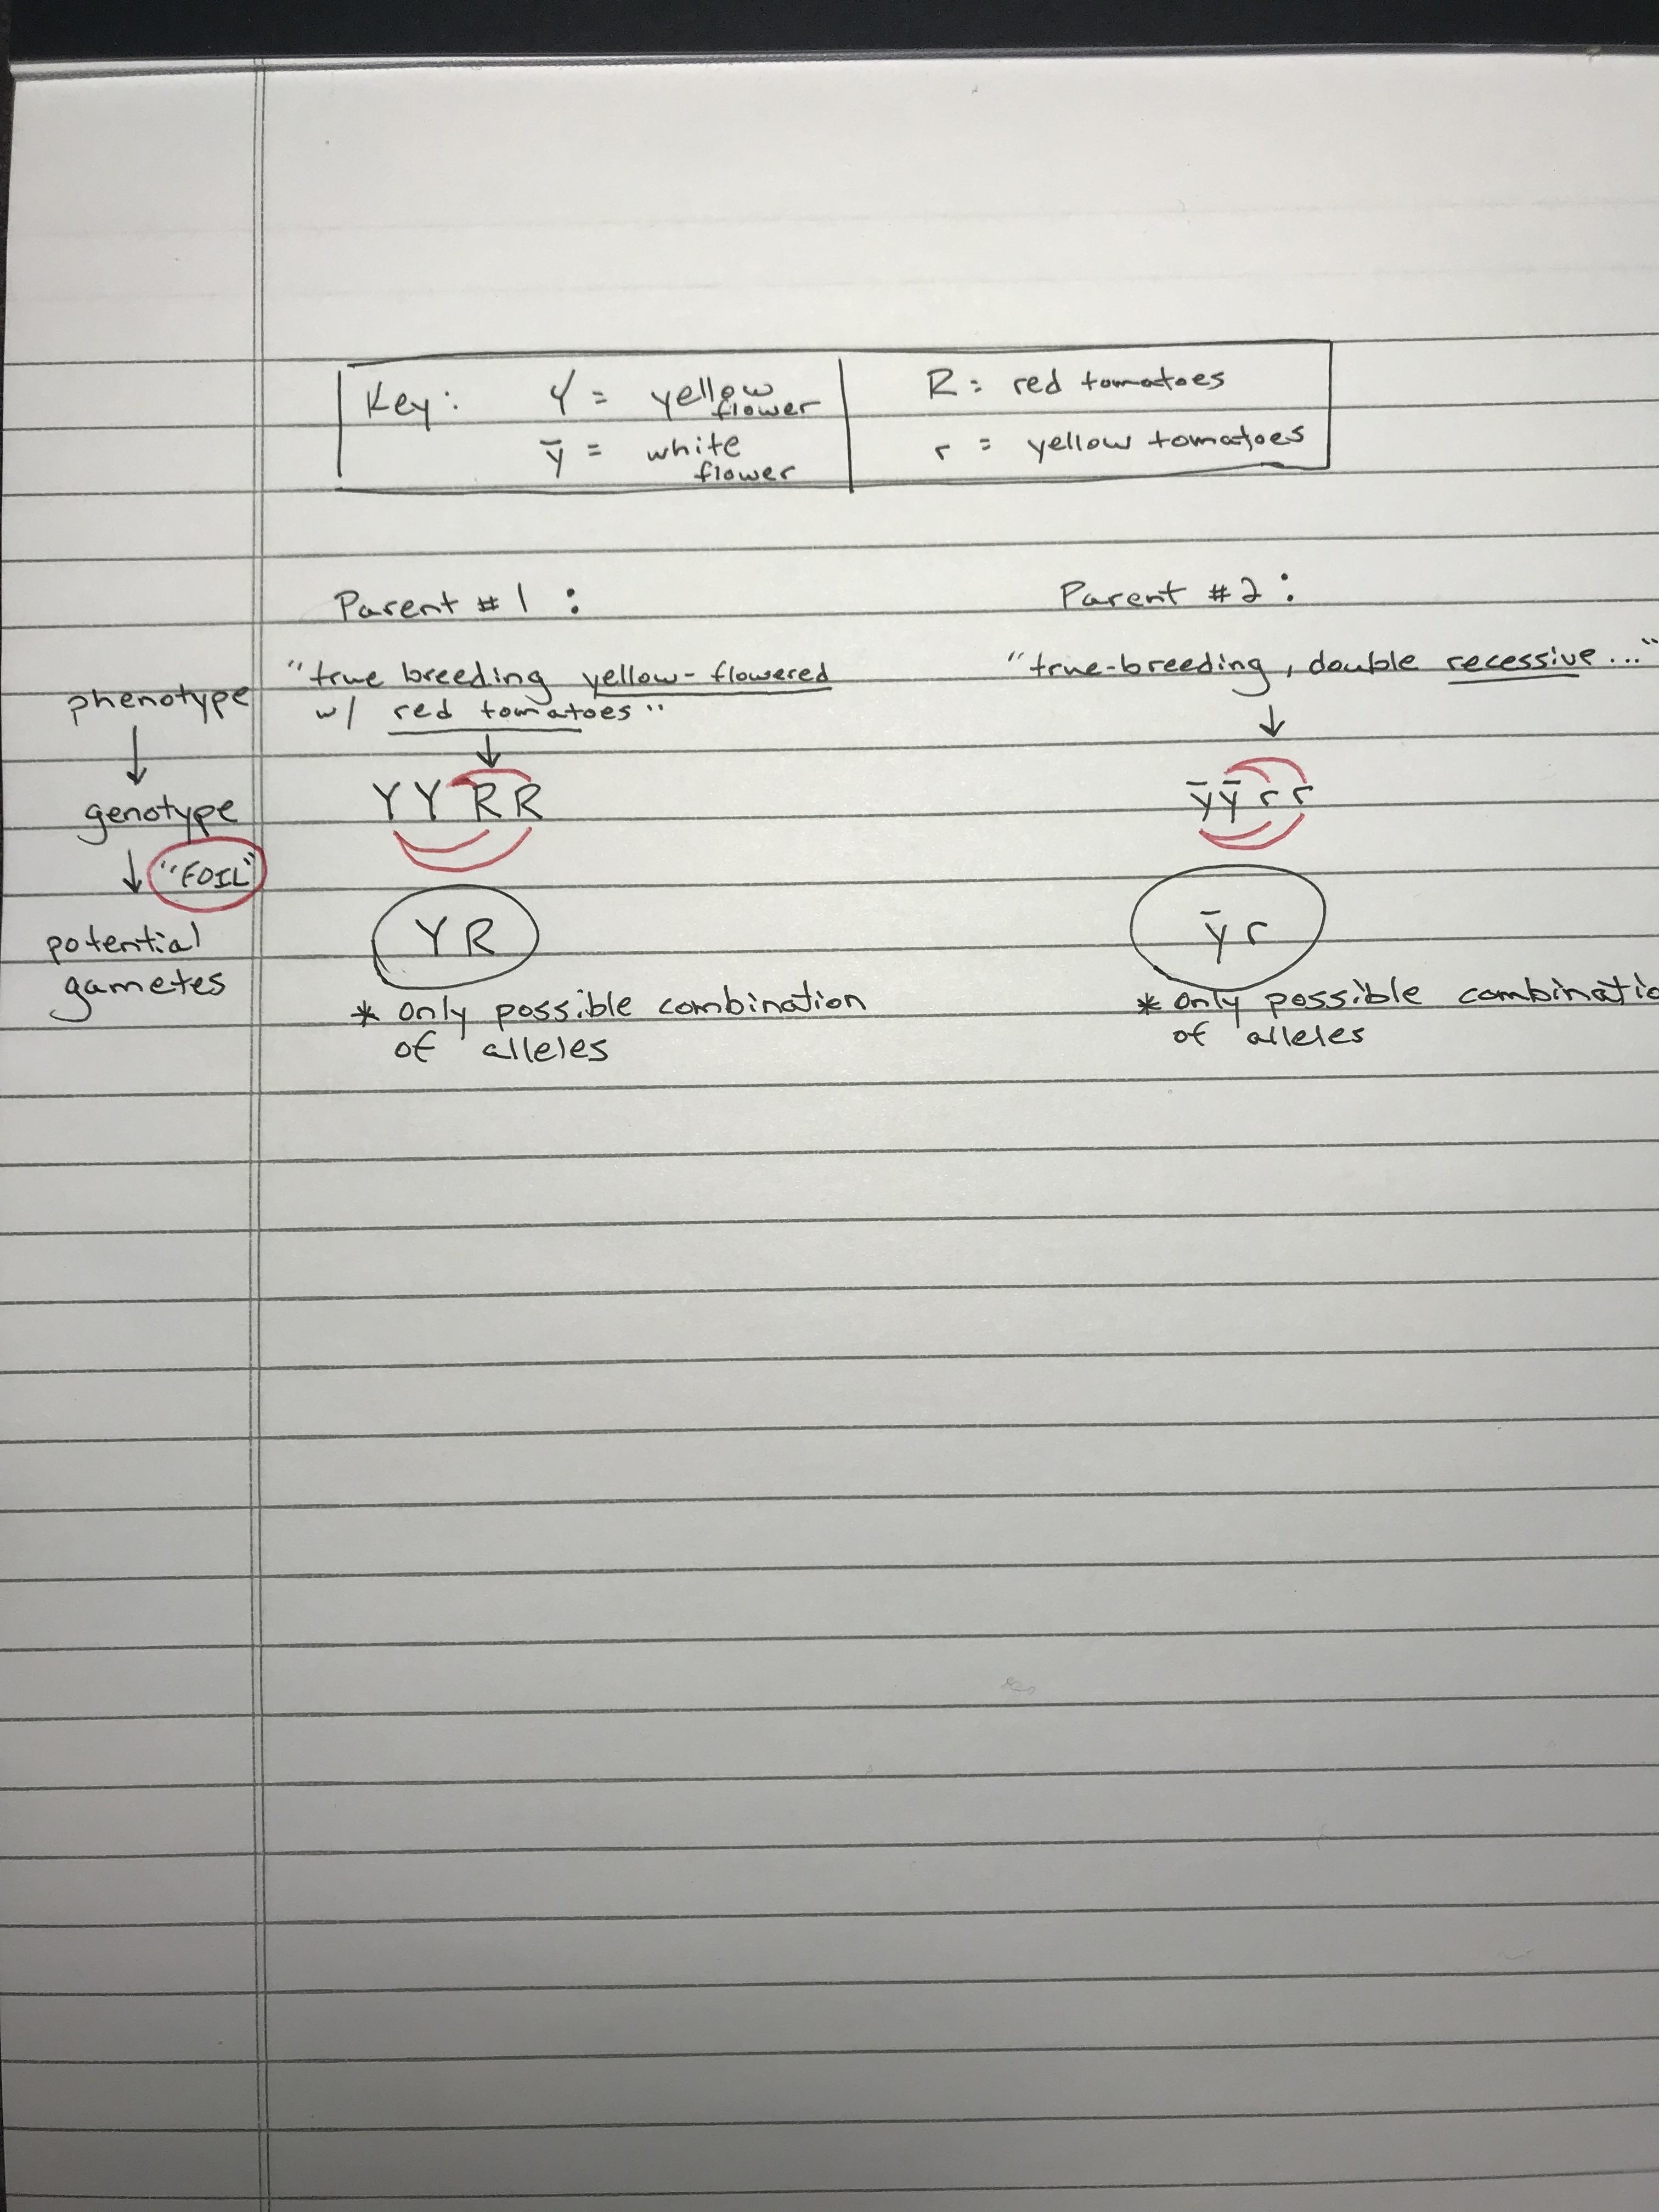 Key: Y = yellow flower
ȳ = white flower
R = red tomatoes
r = yellow tomatoes
Parent #1:
"true breeding yellow-flowered
w/ red tomatoes"
↓
YYRR
YR
* only possible combination
of alleles
Parent #2:
"true-breeding, double recessive..."
↓
ȳȳrr
ȳr
* only possible combinatio
of alleles
phenotype
↓
genotype
↓ "FOIL"
potential
gametes